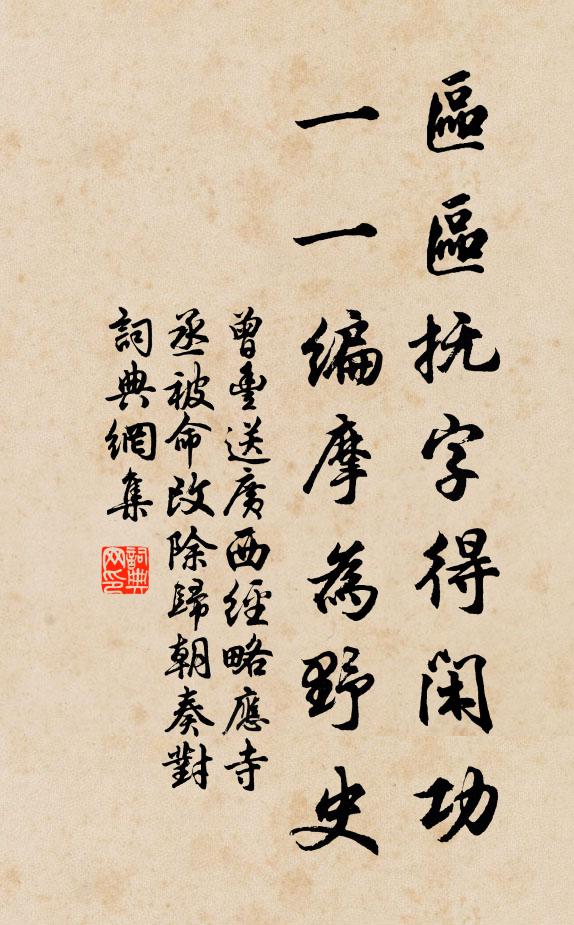 區區抚字得闲功
一一编摩為野史
曾豐送廣西經略應寺
丞被命改除歸朝奏對
詞典網集
詞典
网印